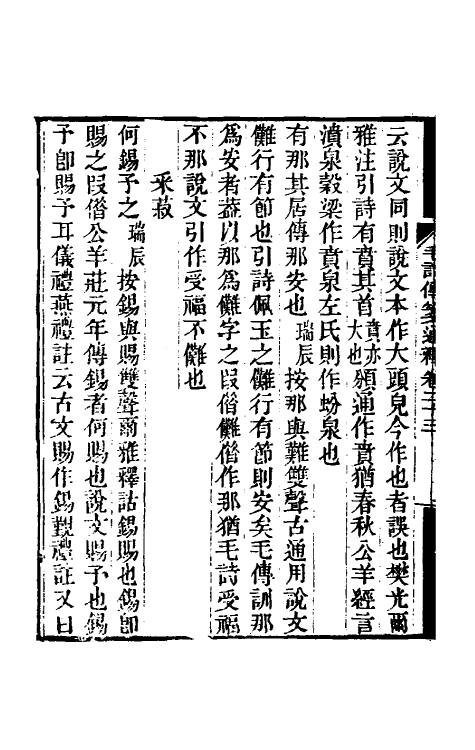 云說文同則說文本作大頭皃今作也者誤也樊光爾
雅注引詩有賁其首賁亦大也頒通作賁猶春秋公羊經言
濆泉穀梁作賁泉左氏則作蚡泉也
有那其居傳那安也瑞辰按那與難雙聲古通用說文
儺行有節也引詩佩玉之儺行有節則安矣毛傳訓那
爲安者葢以那爲儺字之叚俻儺俻作那猶毛詩受福
不那說文引作受福不儺也
采菽
何錫予之瑞辰按錫與賜雙聲爾雅釋詁錫賜也錫卽
賜之叚俻公羊莊元年傳錫者何賜也說文賜予也錫
予卽賜予耳儀禮燕禮註云古文賜作錫覲禮註又曰
毛詩傳箋通釋 卷二十三